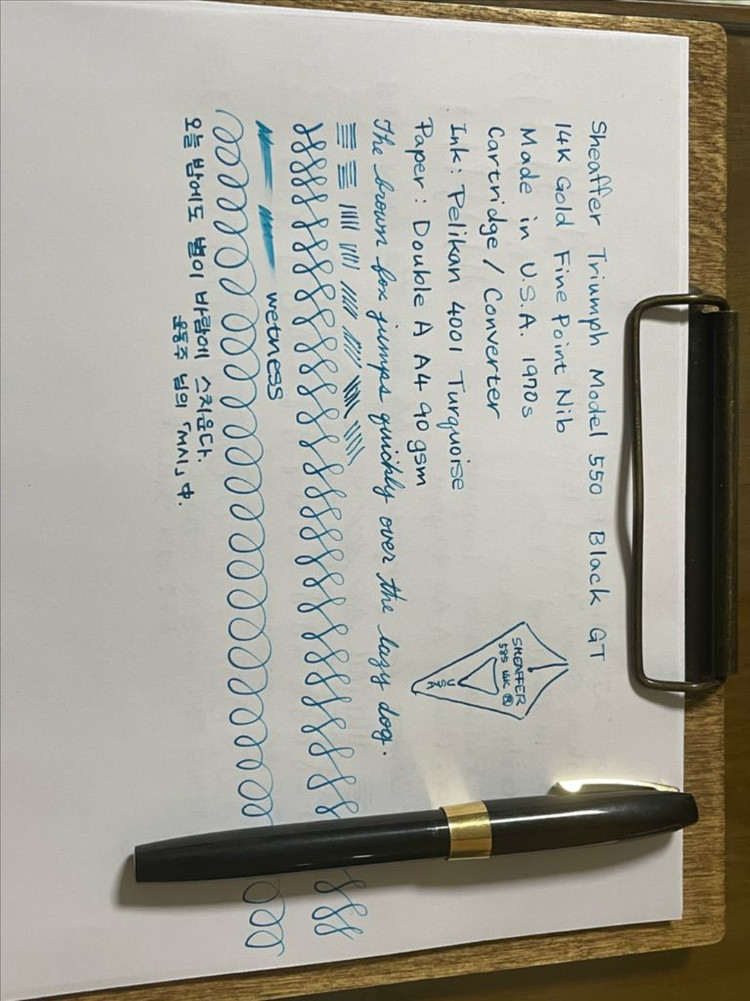 Sheaffer Triumph Model 550 Black GT
14K Gold Fine Point Nib
Made in U.S.A. 1970s
Cartridge / Converter
Ink : Pelikan 4001 Turquoise
Paper : Double A A4 90gsm
The brown fox jumps quickly over the lazy dog.
wetness
오늘 밤에도 별이 바람에 스치운다.
윤동주 님의 「서시」 中.
SHEAFFER
585 14K
USA